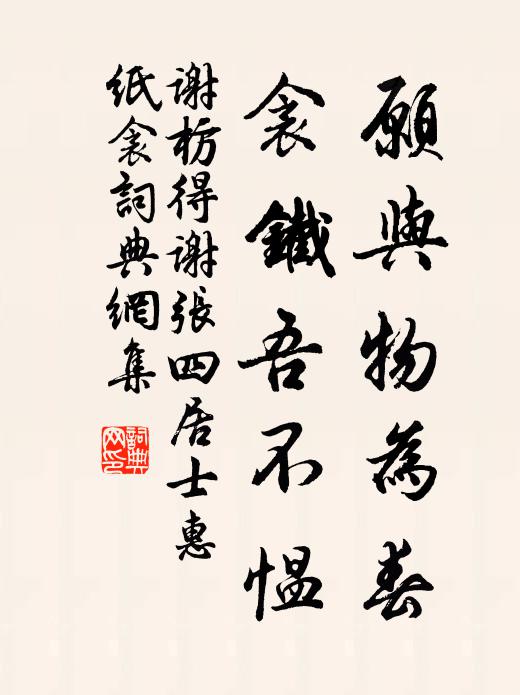 願與物為春
衾鐵吾不愠
謝枋得謝張四居士惠
紙衾詞典網集
詞典
网印